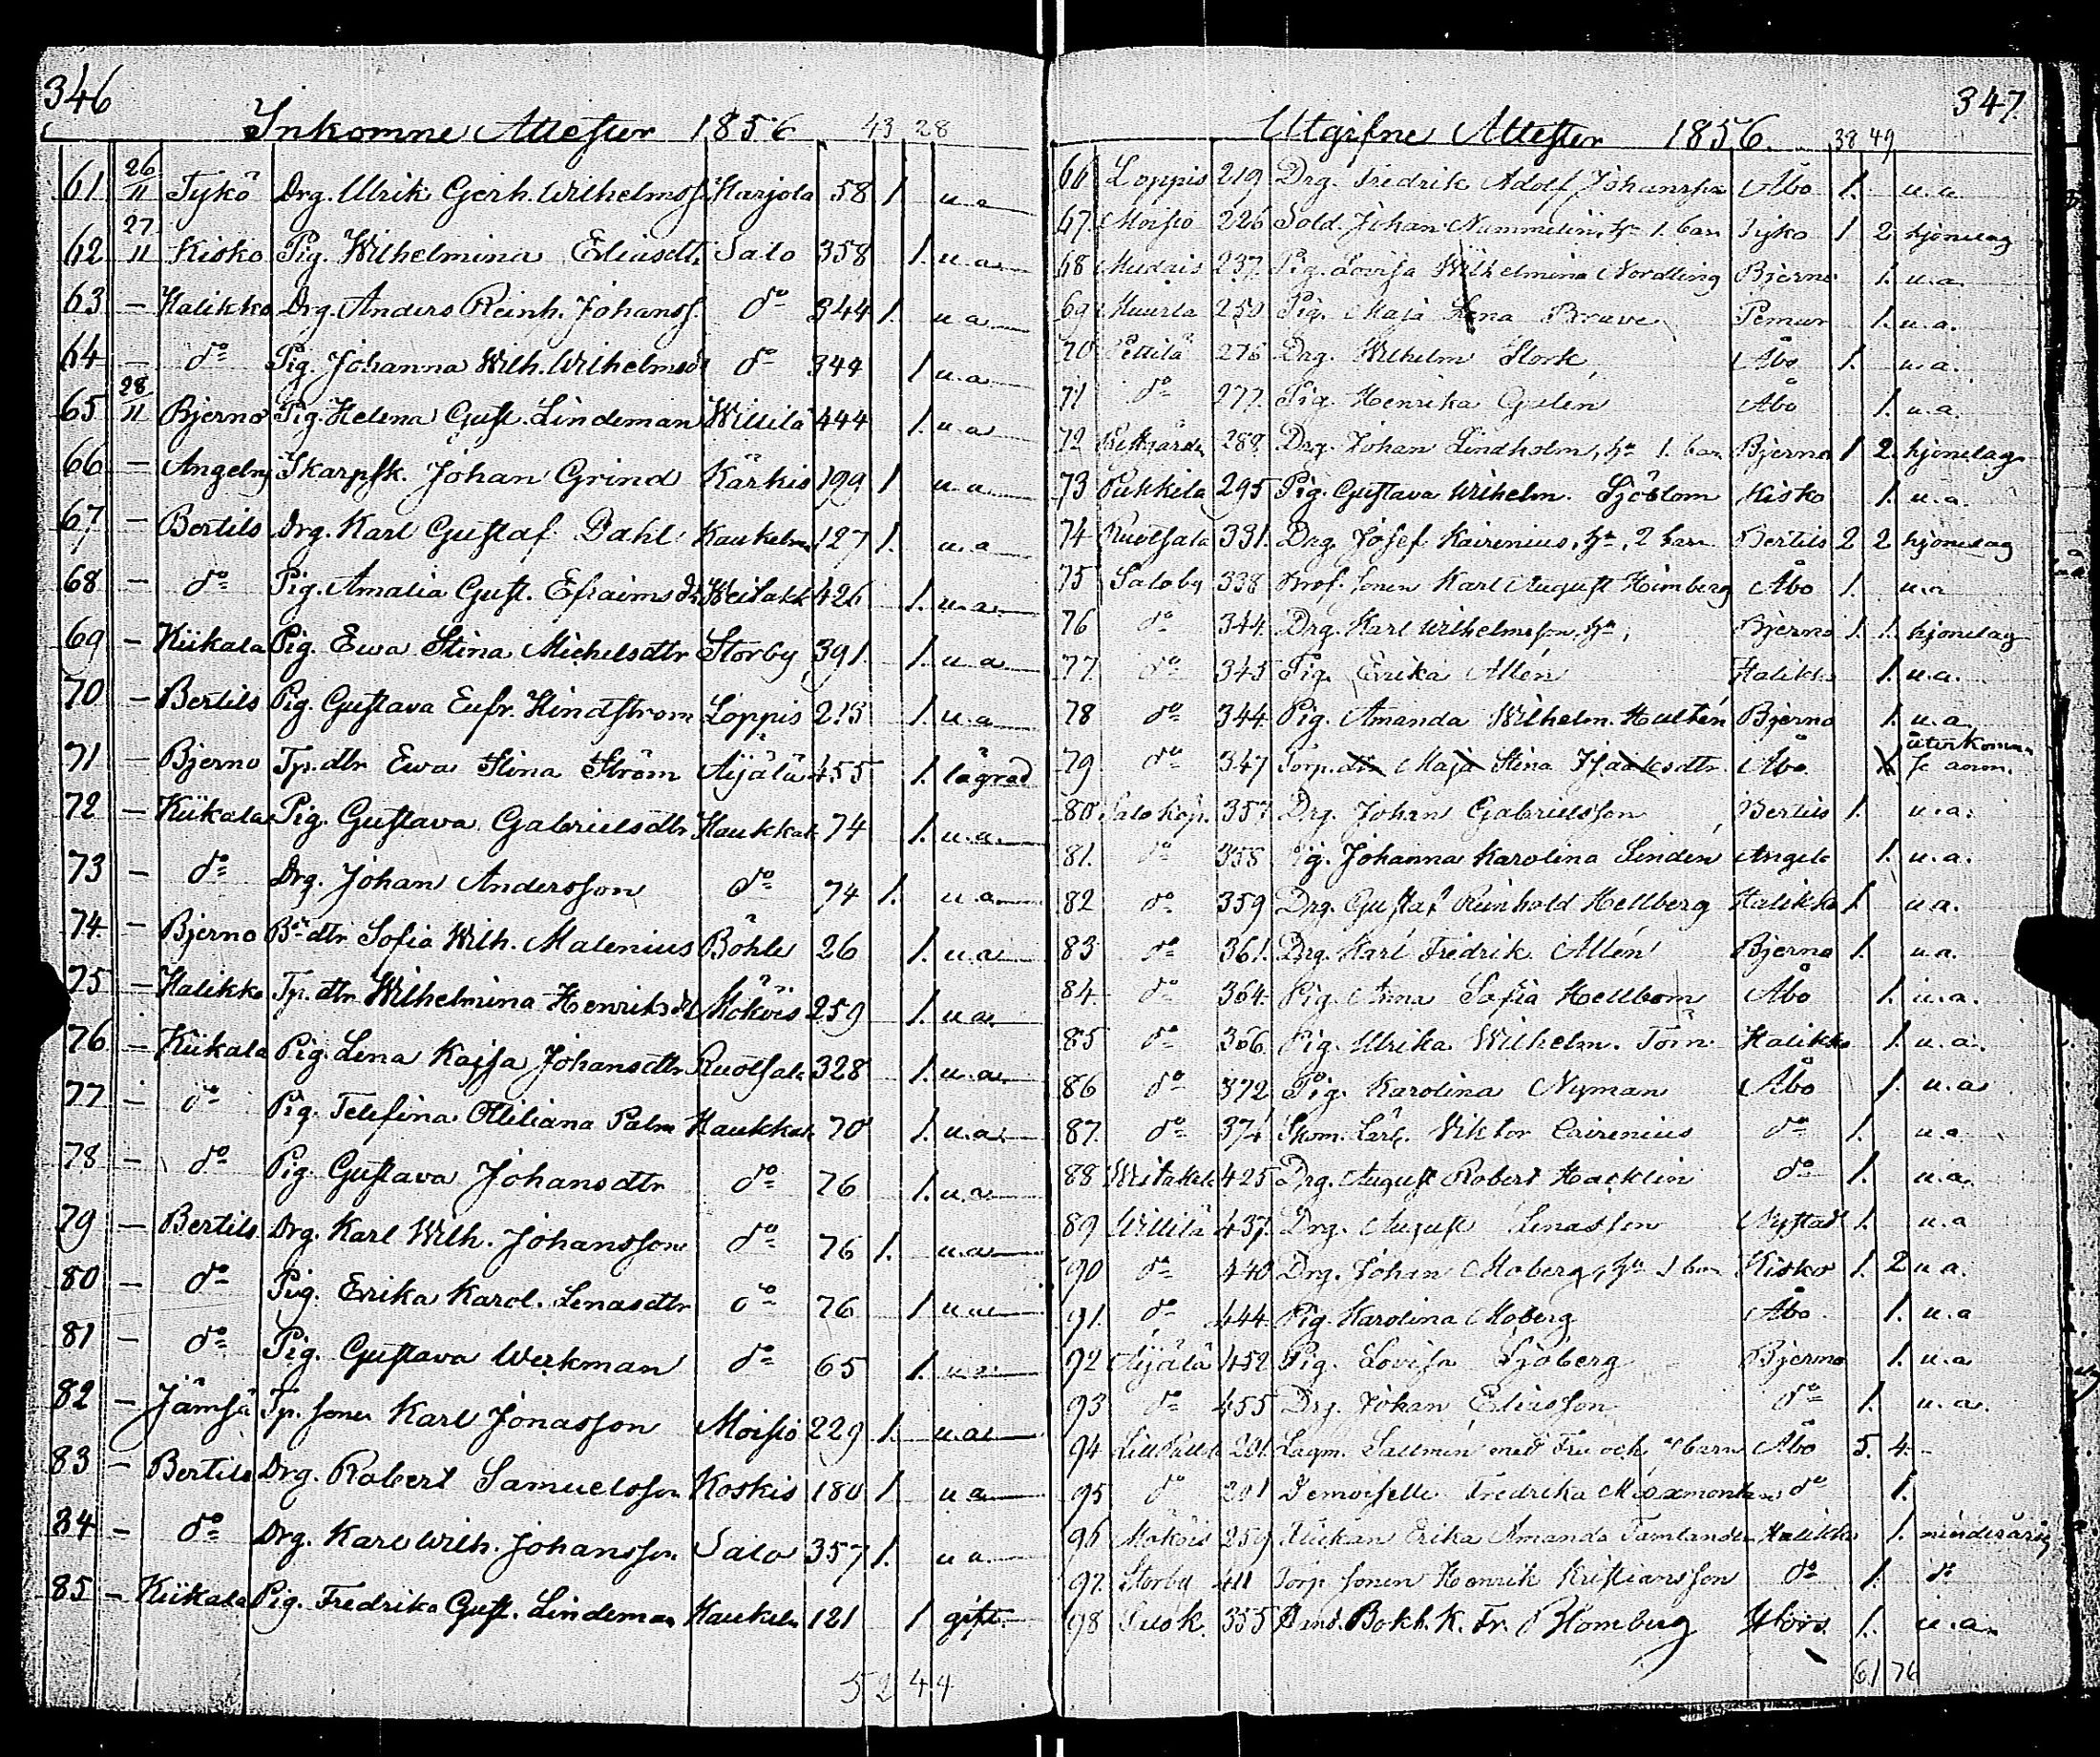 346
Inkomne Attester 1856 43 28
61 26/11 Tykö Drg. Ulrik Gerh. Wilhelmss. Karjola 58 1 u.a
62 27/11 Kisko Pig. Wilhelmina Eliasdtr Salo 358 1. u.a
63 – Halikko Drg. Anders Reinh. Johanss. do 344 1. u a
64 – do Pig. Johanna Wilh. Wilhelmsdr do 344 1 u.a
65 28/11 Bjerno Pig. Helena Gust. Lindeman Willilä 444 1. u a
66 – Angeln Skarpsk. Johan Grind Kärkis 199 1 u.a
67 – Bertils Drg. Karl Gustaf Dahl Kaukela 127 1. u.a
68 – do Pig. Amalia Gust. Efraimsdr Weitakk 426 1. u.a
69 – Kiikala Pig. Ewa Stina Michelsdtr Storby 391. 1. u.a
70 – Bertils Pig. Gustava Eufr. Hindström Loppis 213 1. u.a
71 – Bjerno Tp. dtr Ewa Stina Ström Aijälä 455 1. lägrad
72 – Kiikala Pig. Gustava Gabrielsdtr Haukkal 74 1. u.a.
73 – do Drg. Johan Andersson do 74 1. u.a
74. – Bjerno Bdtr Sofia Wilh. Malenius Böhle 26 1. u.a
75 – Halikko Tp. dtr Wilhelmina Henriksdr Mökös 259 1. u.a.
76 – Kiikala Pig. Lena Kajsa Johansdtr Ruotsala 328 1. u.a.
77 – do Pig. Telefina Ottiliana Palm Haukkal 70 1. u.a.
78 – do Pig. Gustava Johansdtr do 76 1. u.a
79 – Bertils Drg. Karl Wilh. Johansson do 76 1. u.a
80 – do Pig. Erika Karol. Lenasdtr do 76 1 u.a
81 – do Pig. Gustava Werkman do 65 1. u.a
82 – Jämsä Tp. sonen Karl Jonasson Moisio 229 1. u.a
83 – Bertils Drg. Robert Samuelsson Koskis 180 1 u.a
84 – do Drg. Karl Wilh. Johansson Salo 357 1. u a
85 – Kiikala Pig. Fredrika Gust. Lindeman Kaukela 121 1 gift.
52 44
347.
Utgifne Attester 1856. 38 49
66 Loppis 219 Drg. Fredrik Adolf Johansson Åbo 1. u.a.
67. Moisio 226 Sold. Johan Nummelin, hu 1. barn Tyko 1 2 hjonelag
68 237. Pig. Lovisa Wilhelmina Nordling Bjerno 1. u.a.
69 Muurla 250 Pig. Maja Lena Pemar 1. u.a.
70 Pettilä 276 Drg. Wilhelm Stork, Åbo 1. u.a.
71 do 277. Pig. Henrika Åbo 1. u.a.
72 288 Drg. Johan Lindholm, hu 1. barn Bjerno 1 2. hjonelag
73 Pukkila 295 Pig. Gustava Wilhelm. Sjöblom Kisko 1. u.a.
74 Ruotsala 331. Drg. Josef Kairenius, hu, 2 barn Bertils 2 2 hjonelag
75 Saloby 338 Prof. sonen Karl August Himberg Åbo 1. u.a
76 do 344. Drg. Karl Wilhelmsson, hu, Bjerno 1. 1. hjonelag
77. do 345 Pig. Erika Allén Halikko 1. u.a.
78 do 344. Pig. Amanda Wilhelm. Hultén Bjerno 1. u.a.
79 do 347 Torp. dtr Maja Stina Isaaksdtr. Åbo återkommen se anm.
80 Salo köp. 357 Drg. Johan Gabrielsson Bertils 1. u.a.
81. do 358 Pig. Johanna Karolina Linden Angeln 1. u.a.
82 do 359 Drg. Gustaf Reinhold Hellberg Halikko 1 u.a.
83 do 361. Drg. Karl Fredrik Allén Bjerno 1. u.a.
84. do 364. Pig. Anna Sofia Hellbom Åbo 1. u.a.
85 do 366. Pig. Ulrika Wilhelm. Törn Halikko 1. u.a.
86 do 372 Pig. Karolina Nyman Åbo 1. u.a
87. do 374 Skom. Lärl. Viktor Cairenius do 1. u.a
88 Weitakk 425 Drg. August Robert Hacklin do 1. u.a.
89 Willilä 437. Drg. August Lenasson Nystad 1. u.a
90 do 440 Drg. Johan Moberg, hu 1 barn Kisko 1. 2 u a.
91. do 444 Pig. Karolina Moberg Åbo 1. u.a
92 Aijälä 452 Pig. Lovisa Sjöberg Bjerno 1. u.a
93 do 455 Drg. Johan Eliasson do 1. u.a.
94 201. Lagm. Sallmén med Fru och 7 barn Åbo 5. 4 -
95 do 201 Demoiselle Fredrika do 1.
96 Mökös 259 Flickan Erika Amanda Tamlander Halikko 1. minderårig
97. Storby 411 Torp. sonen Henrik Kristiansson do 1. do
98 355 Bokh. K. Fr. Blomberg Hfors. 1. u.a.
61 76